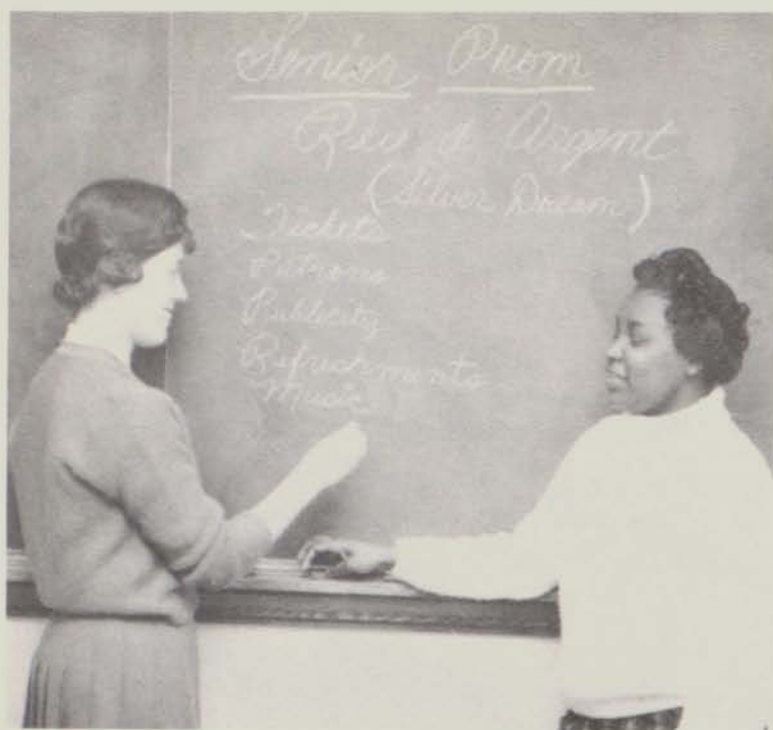 Senior Prom
Rêve d' Argent
(Silver Dream)
Tickets
Patrons
Publicity
Refreshments
Music